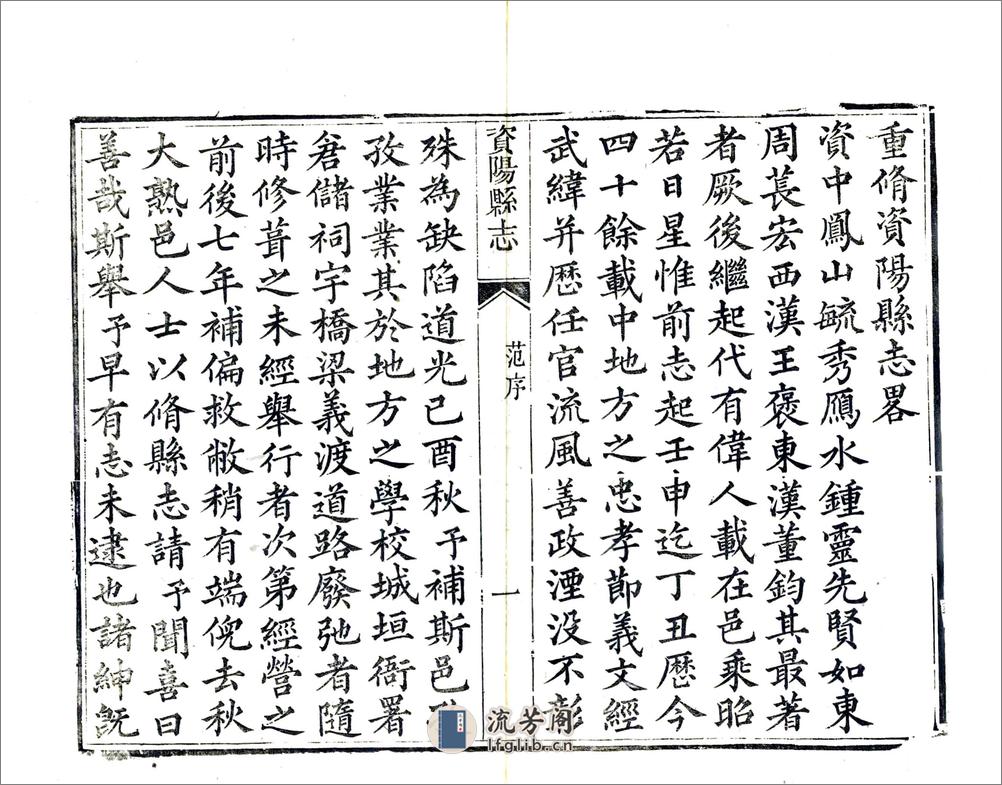 重脩資陽縣志畧
資中鳳山毓秀鴈水鍾靈先賢如東
周萇宏西漢王褒東漢董鈞其最著
者厥後繼起代有偉人載在邑乘昭
若日星惟前志起壬申迄丁丑歴今
四十餘載中地方之忠孝節義文經
武緯并歴任官流風善政湮没不彰
資陽縣志
范序
一
殊為缺陷道光己酉秋予補斯邑
孜業業其於地方之學校城垣衙署
倉儲祠宇橋梁義渡道路廢弛者隨
時修葺之未經舉行者次第經營之
前後七年補偏救敝稍有端倪去秋
大熟邑人士以脩縣志請予聞喜曰
善哉斯舉予早有志未逮也諸紳既
流芳阁
lfglib.cn